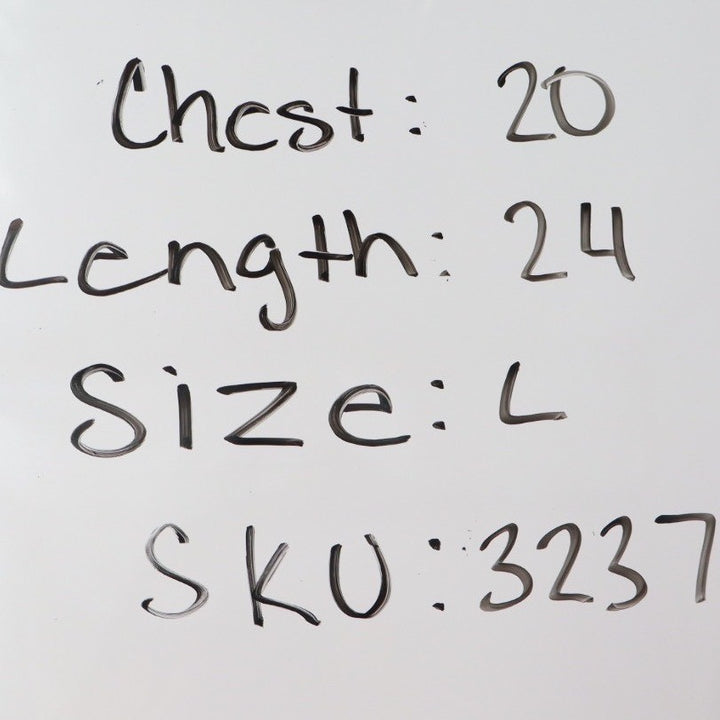 Chest: 20
Length: 24
Size: L
SKU: 3237